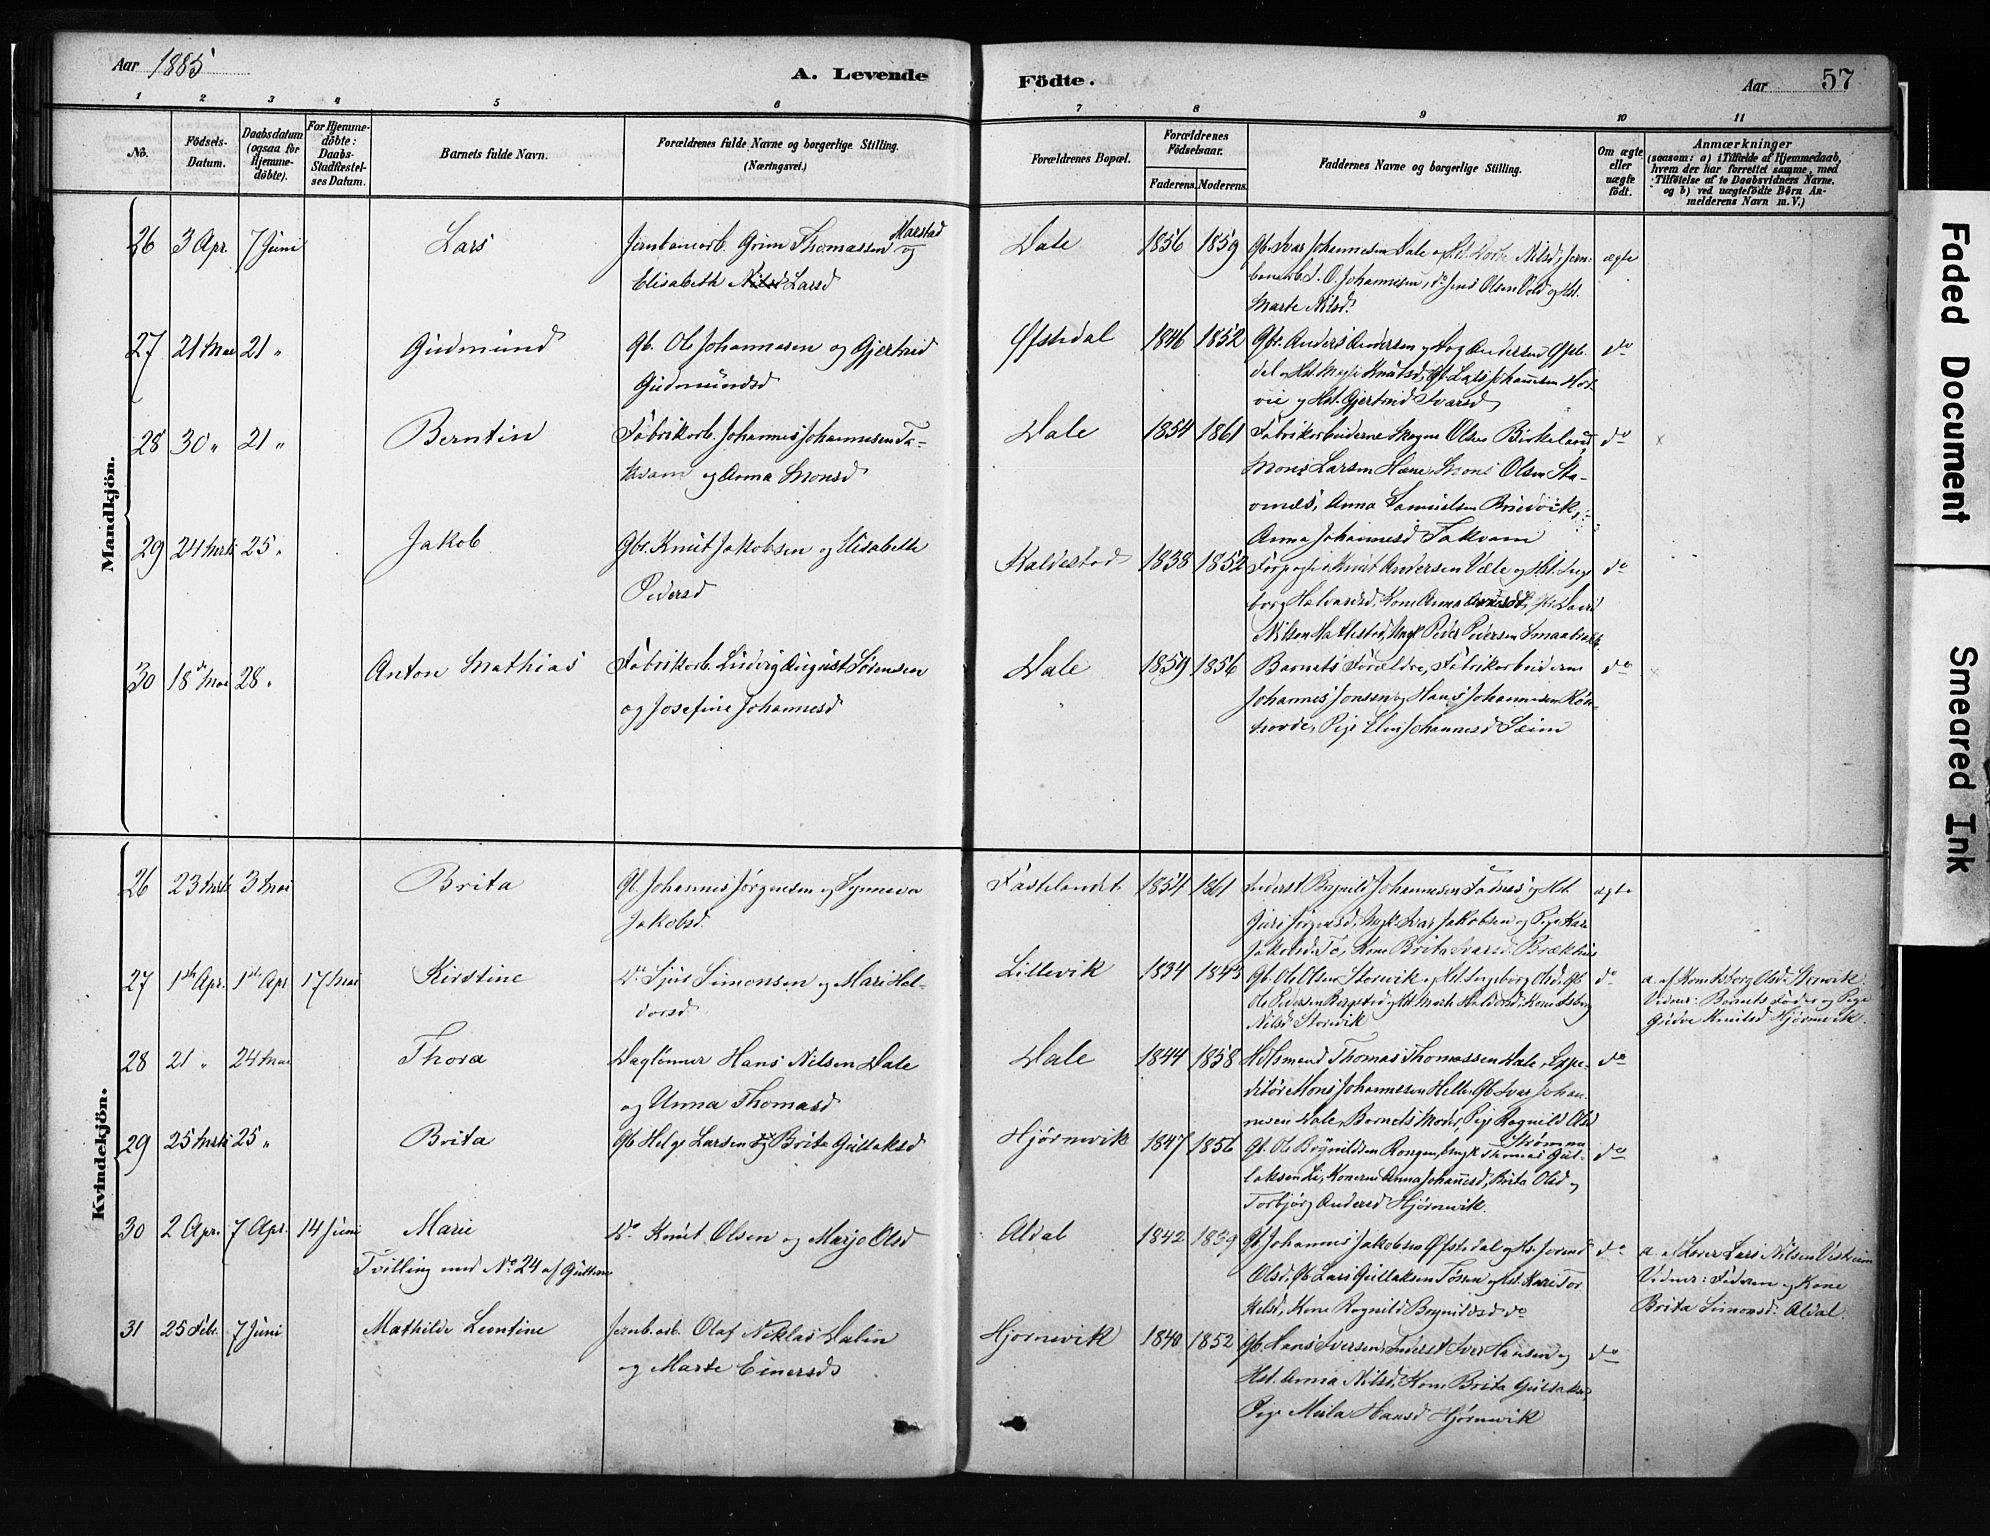 Aar 1885
A. Levende Födte.
Aar 57
1 2 3 4 5 6 7 8 9 10 11
No.
Födsels-
Datum.
Daabsdatum
(ogsaa for
Hjemme-
döbte).
For Hjemme-
döbte:
Daabs-
Stadfæstel-
ses Datum.
Barnets fulde Navn.
Forældrenes fulde Navne og borgerlige Stilling.
(Næringsvei.)
Forældrenes Bopæl.
Forældrenes
Födselsaar.
Faderens. Moderens.
Faddernes Navne og borgerlige Stilling.
Om ægte
eller
uægte
födt.
Anmærkninger
(saasom: a) i Tilfælde af Hjemmedaab,
hvem der har forrettet samme, med
Tilföielse af to Daabsvidners Navne.
og b) ved uægtefödte Börn An-
melderens Navn m. V.)
Mandkjön.
26 3 Apr. 7 Juni Lars Jernbanearb. Grim Thomassen Marstad og
Elisabeth Larsd
Dale 1856 1859 Gb. Ivar Johannesen Dale og Nilsd, Jern-
banearb. O. Johannesen, do Jens Olsen og Hst.
Marte Nilsd. ægte
27 21 Mai 21 " Gudmund Gb. Ole Johannesen og Gjertrud
Gudmundsd
Øfstedal 1846 1852 Gbr. Anders Andersen og Andersen Øfste-
dal og Hst. Knutsd, Gb. Lars Johannesen
og Hst. Gjertrud Ivarsd do
28 30 " 21 " Berntin Fabrikarb. Johannes Johannesen Fa-
kvam og Anna Monsd
Dale 1854 1861 Fabrikarbeiderne Mogne Olsen Birkeland,
Mons Larsen Mons Olsen Sta-
vanes, Anna Samuelsen
Anna Johannesd Fakvam do
29 24 Mrts 25 " Jakob Gbr. Knut Jakobsen og Elisabethe
Pedersd
Kaldestad 1838 1852 Knut Andersen Væle og Hst. Inge-
borg Halvardsd, Kone Anna
Nilsen Peder Pedersen do
30 18de Mai 28 " Anton Mathias Fabrikarb. Ludvig August Sørensen
og Josefine Johannesd
Dale 1859 1856 Barnets Forældre, Fabrikarbeiderne
Johannes Jonsen og Hans Johannesen Røn-
hovde, Pige Elen Johannesd Seim do
Kvindekjön.
26 23 Mrts 3 Mai Brita Gb. Johannes Jørgensen og Synneva
Jakobsd.
Fastelandet 1854 1861 Inderst Johannesen Fadnæs og Hst.
Guri Jørgensd, Ungk. Ivar Jakobsen og Pige Kari
Jakobsd. Fo, Kone Brita Ivarsd. Brækhus ægte
27 1ste Apr. 1ste Apr 17 Mai Kirstine Do Sjur Simonsen og Mari Hal-
dorsd
Lillevik 1834 1843 Gb. Ole Olsen Storvik og Hst. Ingeborg Olsd, Gb.
Ole Pedersen og Hst. Marte Haldorsd, Kone
Nilsd Storvik do a. af Kone Olsd. Storvik.
Vidner: Barnets Fader og Pige
Knutsd Hjørnevik.
28 21 " 24 Mai Thora Daglønner Hans Nilsen Dale
og Unna Thomasd
Dale 1844 1858 Husmand Thomas Thomassen Dale, Expe-
ditør Mons Johannessen Helle, Gb. Ivar Johan-
nesen Dale, Barnets Moder, Pige Ragnild Olsd
do
29 25 Mrts 25 " Brita Gb. Helge Larsen og Brita Gullaksd
Hjørnevik 1847 1856 Gb. Ole Brynildsen Rongen, Ungk. Thomas Gul-
laksen Li, Konerne Anna Johannesd, Brita Olsd og
Torbjør Andersd Hjørnevik. do
30 2 Apr. 7 Apr. 14 Juni Marie Do Knut Olsen og Marjo Olsd
Tvilling med No 24 af Guttene
Aldal 1842 1839 Gb. Johannes Jakobsen Øfstedal og Hst.
Olsd, Gb. Lars Gullaksen Tøssen og Hst. Kari Tor-
kelsd, Kone Ragnild Brynildsd do do a. af Lærer Lars Nilsen
Vidner: Faderen og Kone
Brita Simonsd. Aldal.
31 25 Febr. 7 Juni Mathilde Leontine Jernb.arb. Olaf Niklas Dalin
og Marte Einersd
Hjørnevik 1840 1852 Gb. Hans Iversen, Inderst Iver Hansen og
Hst. Anna Nilsd, Kone Brita Gullaksd,
Pige Hansd Hjørnevik do
Faded Document
Smeared Ink